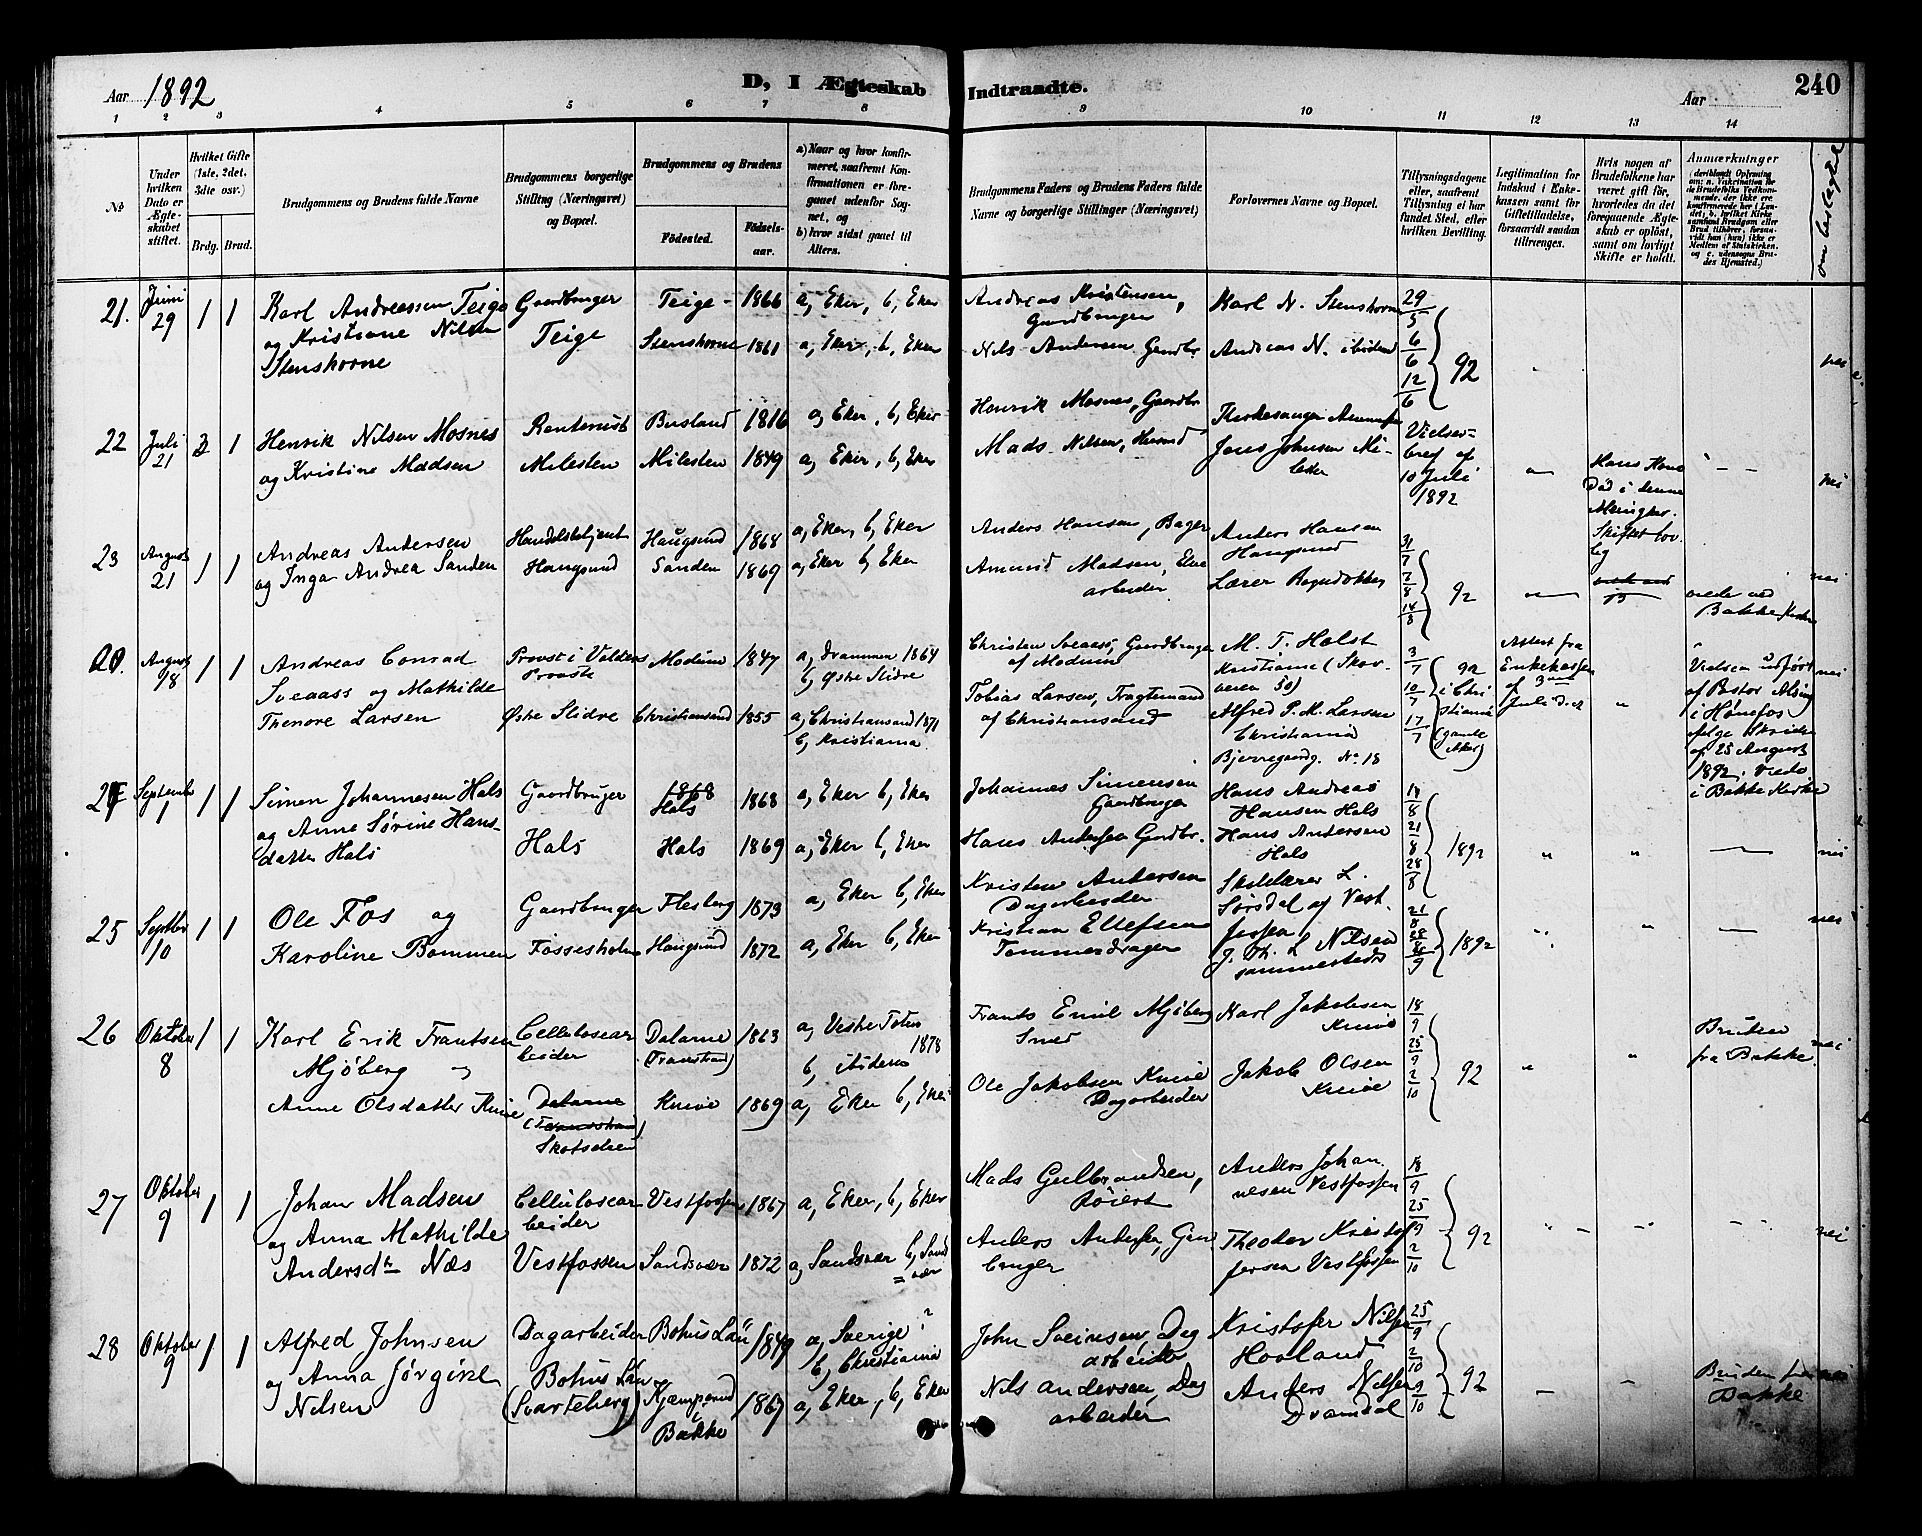 Aar 1892
D, I Ægteskab Indtraadte.
Aar
240
1 2 3 4 5 6 7 8 9 10 11 12 13 14
№
Under hvilken Dato er Ægteskabet stiftet.
Hvilket Gifte (1ste, 2det, 3die osv.)
Brdg. Brud.
Brudgommens og Brudens fulde Navne
Brudgommens borgerlige Stilling (Næringsvei) og Bopæl.
Brudgommens og Brudens
Fødested. Fødselsaar.
a) Naar og hvor konfirmeret, saafremt Konfirmationen er foregaaet udenfor Sognet, og
b) hvor sidst gaaet til Alters.
Brudgommens Faders og Brudens Faders fulde Navne og borgerlige Stillinger (Næringsvei)
Forlovernes Navne og Bopæl.
Tillysningsdagene eller, saafremt Tillysning ei har fundet Sted, efter hvilken Bevilling.
Legitimation for Indskud i Enkekassen samt for Giftetilladelse, forsaavidt saadan tiltrænges.
Hvis nogen af Brudefolkene har været gift før, hvorledes da det foregaaende Ægteskab er opløst, samt om lovligt Skifte er holdt.
Anmærkninger
om beslægtet
21. Juni 29 1 1 Karl Andreassen Teige og Kristiane Nilsen Stenshorne
Gaardbruger Teige
Teige 1866 a, Eker, b, Eker
Stenshorne 1861 a, Eker, b, Eker
Andreas Kristensen, Gardbruger
Nils Andersen Gardbr.
Karl N. Stenshorne
Andreas N. ibidem
29/5 6/6 12/6 92
22 Juli 21 3 1 Henrik Nilsen Mosnes og Kristine Madsen
Rentenist Milesten
Busland 1816 a, Eker, b, Eker
Milesten 1849 a, Eker, b, Eker
Henrik Mosnes, Gaardbr
Mads Nilsen, Husmd
Kirkesanger
Jens Johnsen
Vielsesbref af 10 Juli 1892
Hans Kone Død i denne Menighed. Skiftet lovlig
nei
23 August 21 1 1 Andreas Andersen og Inga Andrea Sanden
Handelsbetjent Haugsund
Haugsund 1868 a, Eker, b, Eker
Sanden 1869 a, Eker b, Eker
Anders Hansen, Bager
Amund Madsen, arbeider
Anders Hansen Haugsund
Lærer
31/7 7/8 14/8 92
viede ved Bakke Kirke
nei
August 9/8 1 1 Andreas Conrad Sveaass og Mathilde Thenore Larsen
Provst i Valders Provsti Østre Slidre
Modum 1847 a, Drammen 1864 b, Østre Slidre
Christiansand 1855 a, Christiansand 1871 b, Kristiania
Christen Sveaass, Gaardbruger af Modum
Tobias Larsen, Fragtemand af Christiansand
M. T. Holst Kristiania (Skovveien 50)
Alfred P. M. Larsen Christiania Bjerregaardg. No 18
3/7 10/7 17/7 92 i Christiania (gamle Aker)
Attest fra Enkekassen af 3die Juli d.A.
Vielsen udført af Pastor Alsing i Hønefos ifølge Skrivelse af 25 August 1892. Viede i Bakke Kirke
nei
September 1 1 1 Simen Johannesen Hals og Anne Sørine Hansdatter Hals
Gaardbruger Hals
Hals 1868 a, Eker b, Eker
Hals 1869 a, Eker b, Eker
Johannes Simensen Gaardbruger
Hans Andersen Gardbr.
Hans Andreas Hansen Hals
Hans Andersen Hals
14/8 21/8 28/8 1892
nei
25 Septbr 10 1 1 Ole Fos og Karoline Bommen
Gaardbruger Fossesholm
Flesberg 1873 a, Eker b, Eker
Haugsund 1872 a, Eker b, Eker
Kristen Andersen Dagarbeider
Kristian Ellefsen Tømmerdrager
Skolelærer L. Sørsdal af Vestfossen
J. Th. L. Nilsen sammesteds
21/8 28/8 4/9 1892
nei
26 Oktober 8 1 1 Karl Erik Frantsen Mjøberg og Anne Olsdatter Knive
Cellulosearbeider
Dalarne (Transtrand) Skotselven
Dalarne (Transtrand) 1863 a, Vestre Toten 1878 b, ibidem
Knive 1869 a, Eker b, Eker
Frants Emil Mjøberg Smed
Ole Jakobsen Knive Dagarbeider
Karl Jakobsen Knive
Jakob Olsen Knive
18/9 25/9 2/10 92
Bruden fra Bakke
nei
27 Oktober 9 1 1 Johan Madsen og Anna Mathilde Andersdtr Næs
Cellulosearbeider Vestfossen
Vestfossen 1867 a, Eker, b, Eker
Sandsvær 1872 a, Sandsvær b, Sandsvær
Mads Gulbrandsen, Røiert
Anders Andersen, Gardbruger
Anders Johannesen Vestfossen
Theodor Kristofersen Vestfossen
18/9 25/9 2/10 92
nei
28 Oktober 9 1 1 Alfred Johnsen og Anna Jørgine Nilsen
Dagarbeider Bohus Län (Svarteborg)
Bohus Län 1849 a, Sverige? b, Christiania
Kjæmperud Bakke 1867 a, Eker, b, Eker
John Sveinsen, Dagarbeider
Nils Andersen, Dagarbeider
Kristofer Nilsen Hovland
Anders Nilsen Dramdal
25/9 2/10 9/10 92
Bruden fra Bakke
nei